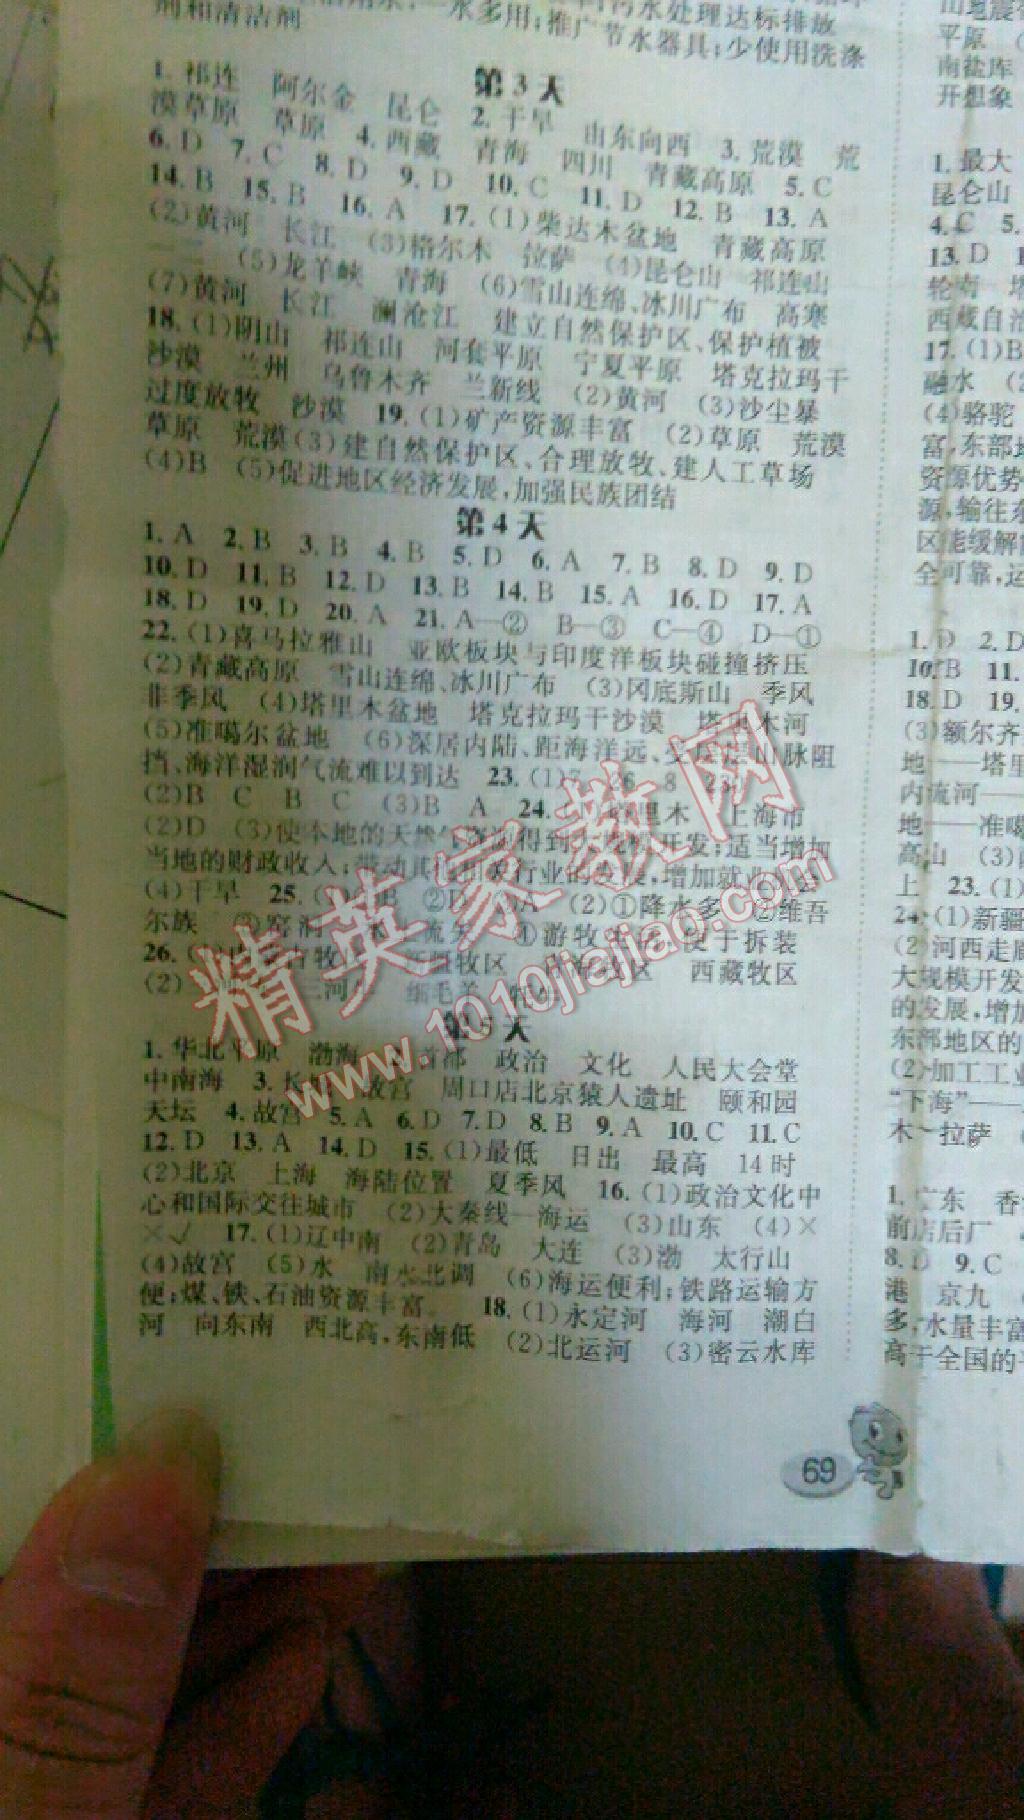 一水多用；推广节水器具；少使用洗涤
剂和清洁剂
第3天
1. 祁连 阿尔金 昆仑 2. 干旱 由东向西 3. 荒漠 荒
漠草原 草原 4. 西藏 青海 四川 青藏高原 5. C
6. D 7. C 8. D 9. D 10. C 11. D 12. B 13. A
14. B 15. B 16. A 17. (1)柴达木盆地 青藏高原
(2)黄河 长江 (3)格尔木 拉萨 (4)昆仑山 祁连山
一 二 (5)龙羊峡 青海 (6)雪山连绵、冰川广布 高寒
(7)黄河 长江 澜沧江 建立自然保护区、保护植被
18. (1)阴山 祁连山 河套平原 宁夏平原 塔克拉玛干
沙漠 兰州 乌鲁木齐 兰新线 (2)黄河 (3)沙尘暴
过度放牧 沙漠 19. (1)矿产资源丰富 (2)草原 荒漠
草原 荒漠(3)建自然保护区、合理放牧、建人工草场
(4)B (5)促进地区经济发展，加强民族团结
第4天
1. A 2. B 3. B 4. B 5. D 6. A 7. B 8. D 9. D
10. D 11. B 12. D 13. B 14. B 15. A 16. D 17. A
18. D 19. D 20. A 21. A—② B—③ C—④ D—①
22. (1)喜马拉雅山 亚欧板块与印度洋板块碰撞挤压
(2)青藏高原 雪山连绵、冰川广布 (3)冈底斯山 季风
非季风 (4)塔里木盆地 塔克拉玛干沙漠 塔里木河
(5)准噶尔盆地 (6)深居内陆、距海洋远、受层层山脉阻
挡、海洋湿润气流难以到达 23. (1)7 26 8 23
(2)B C B C (3)B A 24. (1)塔里木 上海市
(2)D (3)使本地的天然气资源得到大规模开发；适当增加
当地的财政收入；带动其他相关行业的发展，增加就业机会
(4)干旱 25. (1)①B ②D ③A (2)①降水多 ②维吾
尔族 ③窑洞 ④游牧生活，便于拆装
26. (1)内蒙古牧区 新疆牧区 青海牧区 西藏牧区
(2)三河马 三河牛 细毛羊 牦牛
第5天
1. 华北平原 渤海 2. 首都 政治 文化 人民大会堂
中南海 3. 长城 故宫 周口店北京猿人遗址 颐和园
天坛 4. 故宫 5. A 6. D 7. D 8. B 9. A 10. C 11. C
12. D 13. A 14. D 15. (1)最低 日出 最高 14时
(2)北京 上海 海陆位置 夏季风 16. (1)政治文化中
心和国际交往城市 (2)大秦线—海运 (3)山东 (4)×
×√ 17. (1)辽中南 (2)青岛 大连 (3)渤 太行山
(4)故宫 (5)水 南水北调 (6)海运便利；铁路运输方
便；煤、铁、石油资源丰富。 18. (1)永定河 海河 潮白
河 向东南 西北高，东南低 (2)北运河 (3)密云水库
69
精英家教网
www.1010jiajiao.com
平原
南盐库
开想象
1. 最大
昆仑山
4. C 5.
13. D
轮南 塔
西藏自治
17. (1)B
融水
(4)骆驼
富，东部地
资源优势
源，输往东
区能缓解
全可靠，运
1. D 2. D
10. B 11.
18. D 19.
(3)额尔齐
地——塔里
内流河——
地——准噶
高山
上 23. (1)
24. (1)新疆
(2)河西走廊
大规模开发
的发展，增加
东部地区的
(2)加工工业
“下海”——
木—拉萨
1. 广东 香
前店后厂
8. D 9. C
港 京九
多，水量丰富
高于全国的